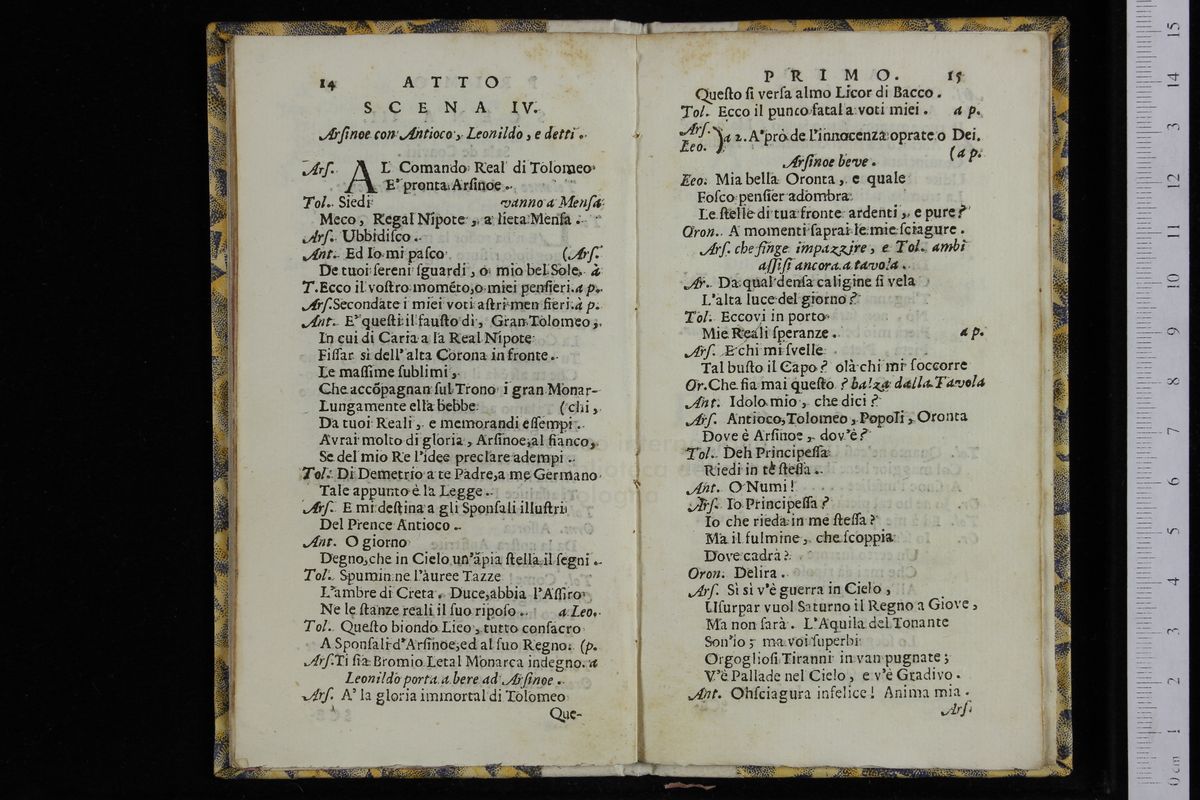 14 ATTO
SCENA IV.
Arſinoe con Antioco, Leonildo, e detti.
Arſ. AL Comando Real di Tolomeo
E' pronta Arſinoe.
Tol. Siedi vanno a Menſa
Meco, Regal Nipote, a lieta Menſa.
Arſ. Ubbidiſco.
Ant. Ed Io mi paſco (Arſ.
De tuoi ſereni ſguardi, o mio bel Sole. à
T. Ecco il voſtro mométo, o miei penſieri. a p.
Arſ. Secondate i miei voti aſtri men fieri. à p.
Ant. E' queſti il fauſto dì, Gran Tolomeo,
In cui di Caria a la Real Nipote
Fiſſar sì dell' alta Corona in fronte.
Le maſſime ſublimi,
Che accõpagnan ſul Trono i gran Monar-
Lungamente ella bebbe (chi,
Da tuoi Reali, e memorandi eſſempi.
Avrai molto di gloria, Arſinoe, al fianco,
Se del mio Re l'idee preclare adempi.
Tol. Di Demetrio a te Padre, a me Germano
Tale appunto è la Legge.
Arſ. E mi deſtina a gli Sponſali illuſtri
Del Prence Antioco.
Ant. O giorno
Degno, che in Cielo un'ãpia ſtella il ſegni.
Tol. Spumin ne l'àuree Tazze
L'ambre di Creta. Duce, abbia l'Aſſiro
Ne le ſtanze reali il ſuo ripoſo. a Leo.
Tol. Queſto biondo Lieo, tutto conſacro
A Sponſali d'Arſinoe, ed al ſuo Regno. (p.
Arſ. Ti ſia Bromio Letal Monarca indegno. a
Leonildo porta a bere ad Arſinoe.
Arſ. A' la gloria immortal di Tolomeo
Que-
PRIMO. 15
Queſto ſi verſa almo Licor di Bacco.
Tol. Ecco il punto fatal a voti miei. a p.
Arſ.
Leo. ) a 2. A' prò de l'innocenza oprate o Dei.
Arſinoe beve. (a p.
Leo. Mia bella Oronta, e quale
Foſco penſier adombra
Le ſtelle di tua fronte ardenti, e pure?
Oron. A momenti ſaprai le mie ſciagure.
Arſ. che finge impazzire, e Tol. ambi
aſſiſi ancora a tavola.
Ar. Da qual denſa caligine ſi vela
L'alta luce del giorno?
Tol. Eccovi in porto
Mie Reali ſperanze. a p.
Arſ. E chi mi ſvelle
Tal buſto il Capo? olà chi mi ſoccorre
Or. Che fia mai queſto? balza dalla Tavola
Ant. Idolo mio, che dici?
Arſ. Antioco, Tolomeo, Popoli, Oronta
Dove è Arſinoe, dov'è?
Tol. Deh Principeſſa
Riedi in tè ſteſſa.
Ant. O Numi!
Arſ. Io Principeſſa?
Io che rieda in me ſteſſa?
Ma il fulmine, che ſcoppia
Dove cadrà?
Oron. Delira.
Arſ. Sì sì v'è guerra in Cielo,
Uſurpar vuol Saturno il Regno a Giove,
Ma non ſarà. L'Aquila del Tonante
Son'io; ma voi ſuperbi
Orgoglioſi Tiranni in van pugnate;
V'è Pallade nel Cielo, e v'è Gradivo.
Ant. Oh ſciagura infelice! Anima mia.
Arſ.